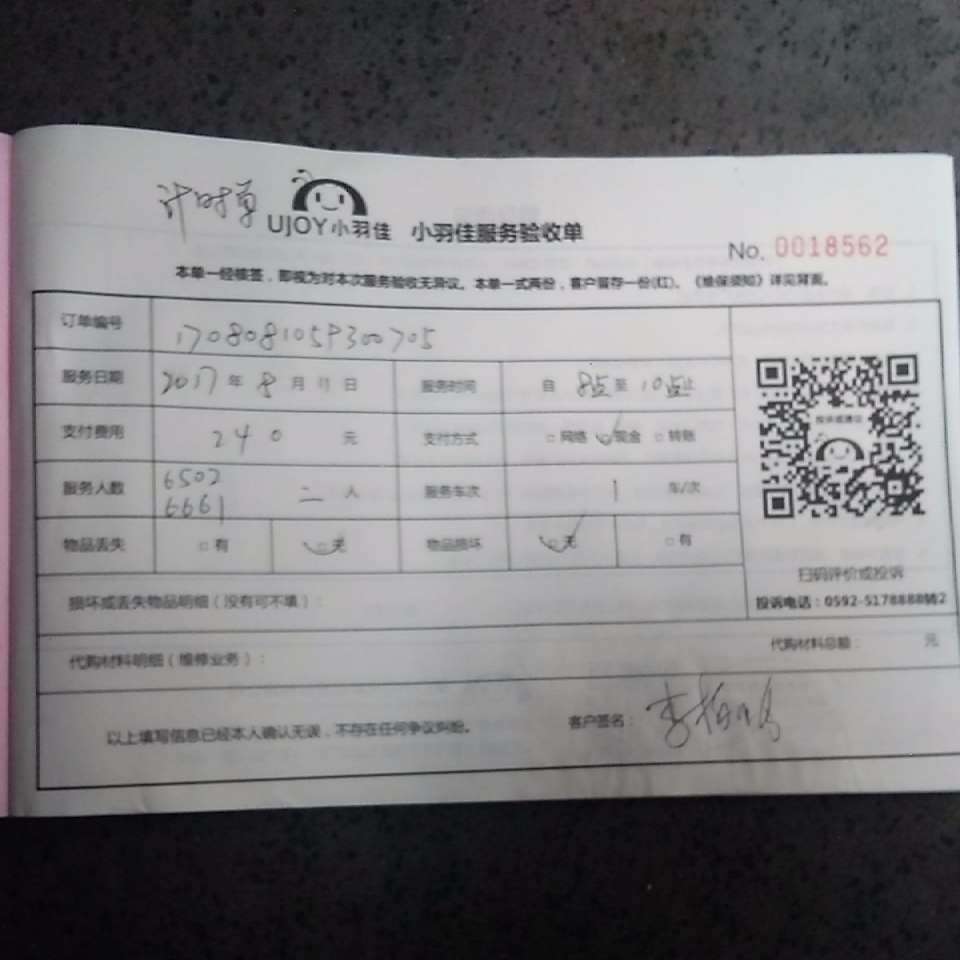 计时单
UJOY小羽佳 小羽佳服务验收单
No. 0018562
本单一经核签，即视为对本次服务验收无异议。本单一式两份，客户留存一份(红)。《维保须知》详见背面。
订单编号 1708081059300705
服务日期 2017年8月11日 服务时间 自 8点 至 10点止
支付费用 240 元 支付方式 □网络 ☑现金 □转账
服务人数 6502 6661 二 人 服务车次 1 车/次
物品丢失 □有 ☑无 物品损坏 ☑无 □有
投诉或建议
扫码评价或投诉
投诉电话：0592-5178888转2
损坏或丢失物品明细（没有可不填）：
代购材料明细（维修业务）： 代购材料总额： 元
以上填写信息已经本人确认无误，不存在任何争议纠纷。 客户签名：